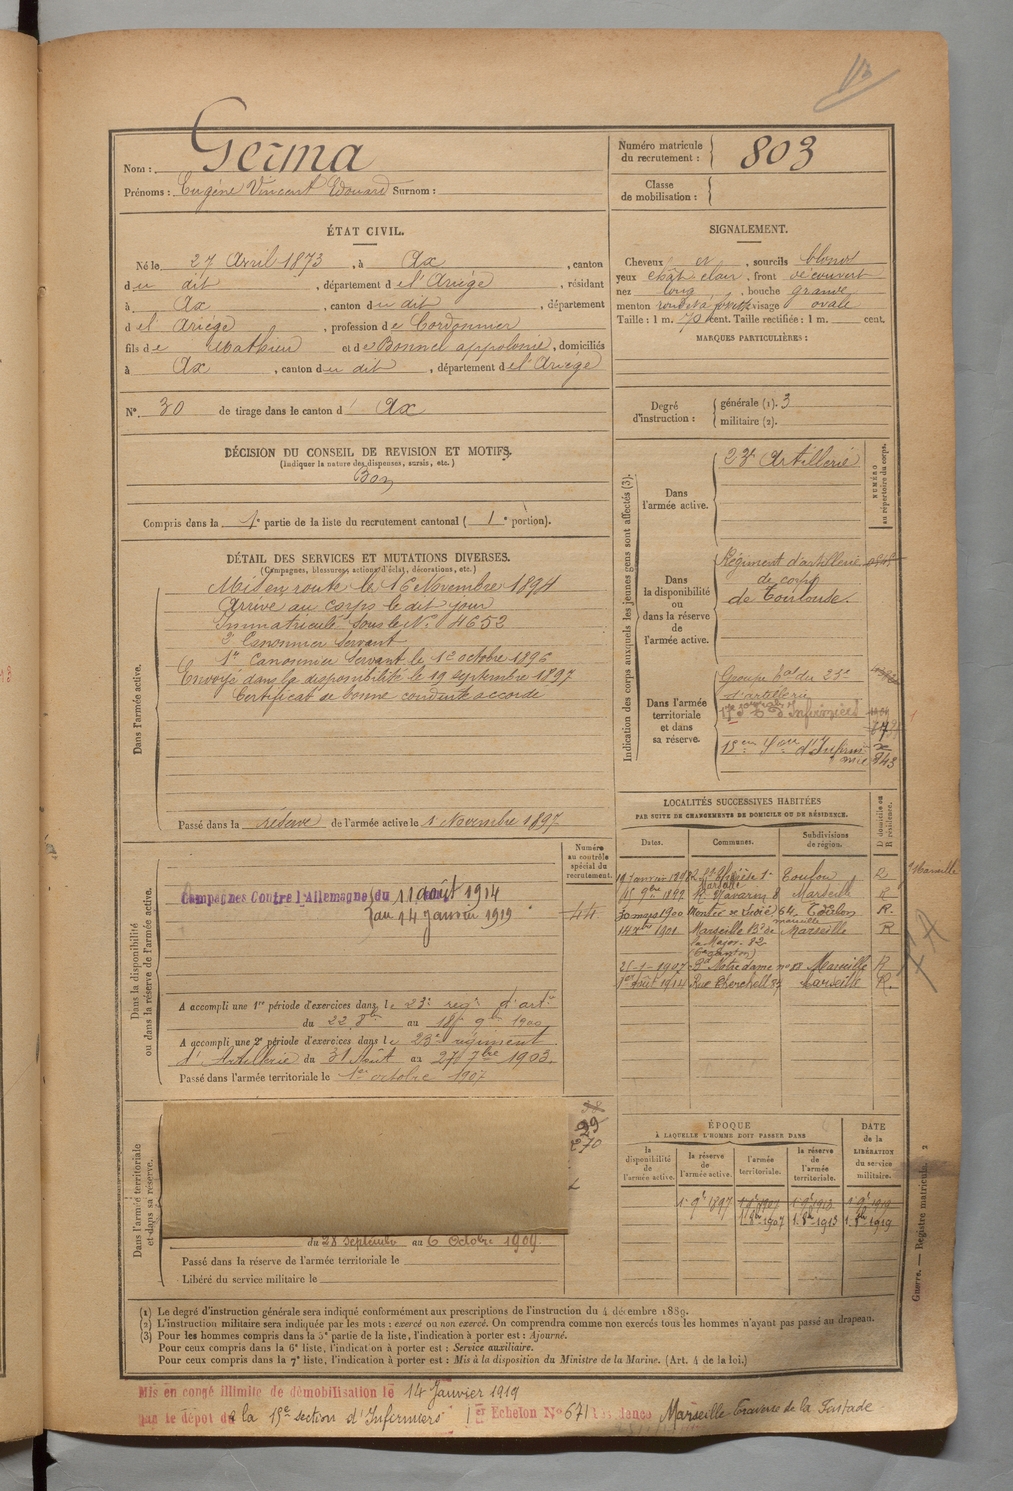 113
Nom : Germa
Prénoms : Eugène Vincent Edouard Surnom :
Numéro matricule du recrutement : 803
Classe de mobilisation :
ÉTAT CIVIL.
Né le 27 Avril 1873, à Ax, canton
du dit, département de l'Ariège, résidant
à Ax, canton du dit, département
de l'Ariège, profession de Cordonnier
fils de Mathieu et de Bonnel appolonie, domiciliés
à Ax, canton du dit, département de l'Ariège
N° 30 de tirage dans le canton d' Ax
SIGNALEMENT.
Cheveux et, sourcils blonds
yeux chât clair, front découvert
nez long, bouche grande
menton rond visage ovale
Taille : 1 m. 70 cent. Taille rectifiée : 1 m. cent.
MARQUES PARTICULIÈRES :
Degré d'instruction : générale (1). 3
militaire (2).
DÉCISION DU CONSEIL DE REVISION ET MOTIFS.
(Indiquer la nature des dispenses, sursis, etc.)
Bon
Compris dans la 1e partie de la liste du recrutement cantonal ( 1e portion).
DÉTAIL DES SERVICES ET MUTATIONS DIVERSES.
(Campagnes, blessures, actions d'éclat, décorations, etc.)
Dans l'armée active.
Mis en route le 16 Novembre 1894
Arrivé au corps le dit jour
Immatriculé sous le N° 4652
2e Canonnier Servant
1er Canonnier Servant le 1er octobre 1896
Envoyé dans la disponibilité le 19 septembre 1897
Certificat de bonne conduite accordé
Passé dans la réserve de l'armée active le 1 Novembre 1897
Indication des corps auxquels les jeunes gens sont affectés (3).
NUMÉRO au répertoire du corps.
Dans l'armée active.
23e Artillerie
Dans la disponibilité ou dans la réserve de l'armée active.
Régiment d'artillerie
de corps
de Toulouse.
Dans l'armée territoriale et dans sa réserve.
Groupe tal du 23e
d'artillerie
15e Son d'Infirmiers
843
LOCALITÉS SUCCESSIVES HABITÉES
PAR SUITE DE CHANGEMENTS DE DOMICILE OU DE RÉSIDENCE.
Dates. Communes. Subdivisions de région. D domicile ou R résidence.
19 janvier 1898 Toulon R
15 9bre 1899 R. Navarin 8 Marseille R
30 mars 1900 64 Toulon R.
14 1901 Marseille Bd de la Major. 82 Marseille R
21-1-1907 Bd Notre dame Marseille R
1er août 1914 Rue Cherchell Marseille R.
Marseille
Dans la disponibilité ou dans la réserve de l'armée active.
Numéro au contrôle spécial du recrutement.
Campagnes Contre l'Allemagne du 11 août 1914
au 14 janvier 1919
44
A accompli une 1re période d'exercices dans le 23e régt d'arte
du 22 8bre au 18 9bre 1900
A accompli une 2e période d'exercices dans le 23e régiment
d'Artillerie du 31 Août au 27 7bre 1903.
Passé dans l'armée territoriale le 1er octobre 1907
Dans l'armée territoriale et dans sa réserve.
38
39
270
du 28 septembre au 6 Octobre 1909.
Passé dans la réserve de l'armée territoriale le
Libéré du service militaire le
ÉPOQUE
À LAQUELLE L'HOMME DOIT PASSER DANS
la disponibilité de l'armée active. la réserve de l'armée active. l'armée territoriale. la réserve de l'armée territoriale. DATE de la LIBÉRATION du service militaire.
1 9e 1897 1 9e 1907 1 9e 1913 1 9e 1919
1. 8bre 1907 1. 8bre 1913 1. 8bre 1919
Guerre. — Registre matricule. 2
(1) Le degré d'instruction générale sera indiqué conformément aux prescriptions de l'instruction du 4 décembre 1889.
(2) L'instruction militaire sera indiquée par les mots : exercé ou non exercé. On comprendra comme non exercés tous les hommes n'ayant pas passé au drapeau.
(3) Pour les hommes compris dans la 5e partie de la liste, l'indication à porter est : Ajourné.
Pour ceux compris dans la 6e liste, l'indication à porter est : Service auxiliaire.
Pour ceux compris dans la 7e liste, l'indication à porter est : Mis à la disposition du Ministre de la Marine. (Art. 4 de la loi.)
Mis en congé illimité de démobilisation le 14 Janvier 1919
par le dépôt de la 15e section d'Infirmiers 1er Echelon N° 671 Résidence Marseille Traverse de la